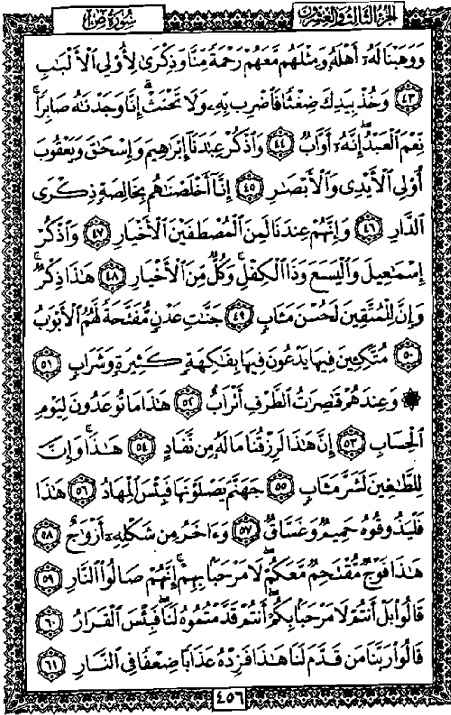 سُورَةُ صٓ
الجُزْءُ الثَّالِثُ وَالعِشْرُونَ
وَوَهَبْنَا لَهُۥٓ أَهْلَهُۥ وَمِثْلَهُم مَّعَهُمْ رَحْمَةً مِّنَّا وَذِكْرَىٰ لِأُو۟لِى ٱلْأَلْبَٰبِ
٤٣ وَخُذْ بِيَدِكَ ضِغْثًا فَٱضْرِب بِّهِۦ وَلَا تَحْنَثْ ۗ إِنَّا وَجَدْنَٰهُ صَابِرًا ۚ
نِّعْمَ ٱلْعَبْدُ ۖ إِنَّهُۥٓ أَوَّابٌ ٤٤ وَٱذْكُرْ عِبَٰدَنَآ إِبْرَٰهِيمَ وَإِسْحَٰقَ وَيَعْقُوبَ
أُو۟لِى ٱلْأَيْدِى وَٱلْأَبْصَٰرِ ٤٥ إِنَّآ أَخْلَصْنَٰهُم بِخَالِصَةٍ ذِكْرَى
ٱلدَّارِ ٤٦ وَإِنَّهُمْ عِندَنَا لَمِنَ ٱلْمُصْطَفَيْنَ ٱلْأَخْيَارِ ٤٧ وَٱذْكُرْ
إِسْمَٰعِيلَ وَٱلْيَسَعَ وَذَا ٱلْكِفْلِ ۖ وَكُلٌّ مِّنَ ٱلْأَخْيَارِ ٤٨ هَٰذَا ذِكْرٌ ۚ
وَإِنَّ لِلْمُتَّقِينَ لَحُسْنَ مَـَٔابٍ ٤٩ جَنَّٰتِ عَدْنٍ مُّفَتَّحَةً لَّهُمُ ٱلْأَبْوَٰبُ
٥٠ مُتَّكِـِٔينَ فِيهَا يَدْعُونَ فِيهَا بِفَٰكِهَةٍ كَثِيرَةٍ وَشَرَابٍ ٥١
۞ وَعِندَهُمْ قَٰصِرَٰتُ ٱلطَّرْفِ أَتْرَابٌ ٥٢ هَٰذَا مَا تُوعَدُونَ لِيَوْمِ
ٱلْحِسَابِ ٥٣ إِنَّ هَٰذَا لَرِزْقُنَا مَا لَهُۥ مِن نَّفَادٍ ٥٤ هَٰذَا ۚ وَإِنَّ
لِلطَّٰغِينَ لَشَرَّ مَـَٔابٍ ٥٥ جَهَنَّمَ يَصْلَوْنَهَا فَبِئْسَ ٱلْمِهَادُ ٥٦ هَٰذَا
فَلْيَذُوقُوهُ حَمِيمٌ وَغَسَّاقٌ ٥٧ وَءَاخَرُ مِن شَكْلِهِۦٓ أَزْوَٰجٌ ٥٨
هَٰذَا فَوْجٌ مُّقْتَحِمٌ مَّعَكُمْ ۖ لَا مَرْحَبًۢا بِهِمْ ۚ إِنَّهُمْ صَالُوا۟ ٱلنَّارِ ٥٩
قَالُوا۟ بَلْ أَنتُمْ لَا مَرْحَبًۢا بِكُمْ ۖ أَنتُمْ قَدَّمْتُمُوهُ لَنَا ۖ فَبِئْسَ ٱلْقَرَارُ ٦٠
قَالُوا۟ رَبَّنَا مَن قَدَّمَ لَنَا هَٰذَا فَزِدْهُ عَذَابًا ضِعْفًا فِى ٱلنَّارِ ٦١
٤٥٦